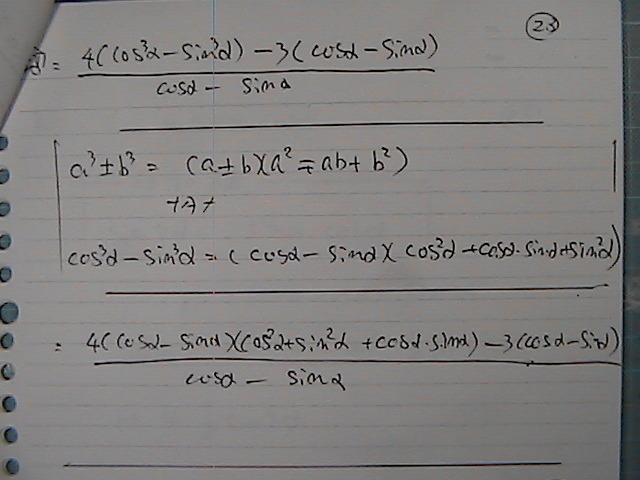 23
= 4(cos³α - sin³α) - 3(cosα - sinα)
cosα - sinα
a³ ± b³ = (a ± b)(a² ∓ ab + b²)
cos³α - sin³α = (cosα - sinα)(cos²α + cosα·sinα + sin²α)
= 4(cosα - sinα)(cos²α + sin²α + cosα·sinα) - 3(cosα - sinα)
cosα - sinα